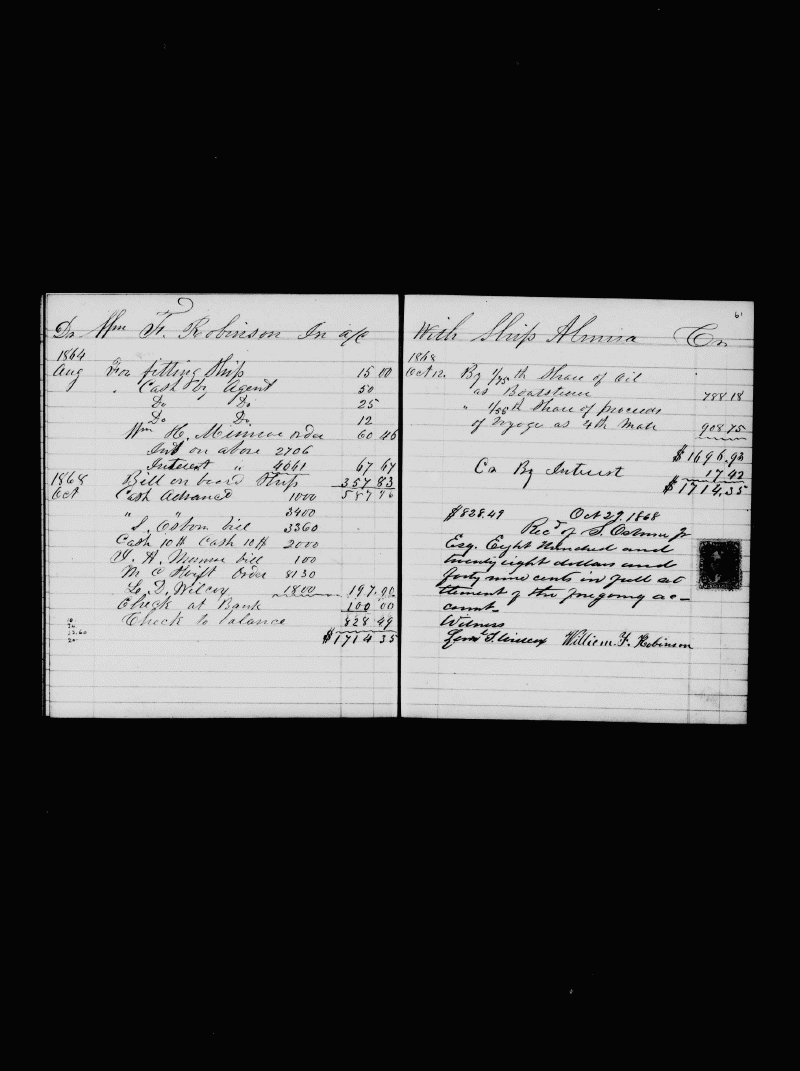 Dr Wm F. Robinson In a/c
1864
Aug For fitting Ship 15 00
" Cash by Agent 50
Do Do 25
Do Do 12
Wm H. Munroe order 60 46
Int on above 2706
Interest " 4061 67 67
1868 Bill on board Ship 357 83
Oct Cash Advanced 1000 587 96
" " 3400
S. Osborn bill 3360
Cash 10 Cash 10 2000
Munroe bill 100
Swift Order 8130
L. D. Wilcox 1800 197.90
Check at Bank 100 00
Check to balance 828 49
$1714 35
10
20
With Ship Almira Cr
1868
Oct 12 By 1/75th Share of Oil
as Boatsteerer 788 18
" th Share of proceeds
of Voyage as 4th Mate 908 75
$1696.93
Cr By Interest 17 42
$1714.35
$828.49 Oct 29, 1868
Recd of S. Osborn Jr
Esq. Eight Hundred and
twenty eight dollars and
forty nine cents in full set
tlement of the foregoing ac-
count.
Witness
William F. Robinson